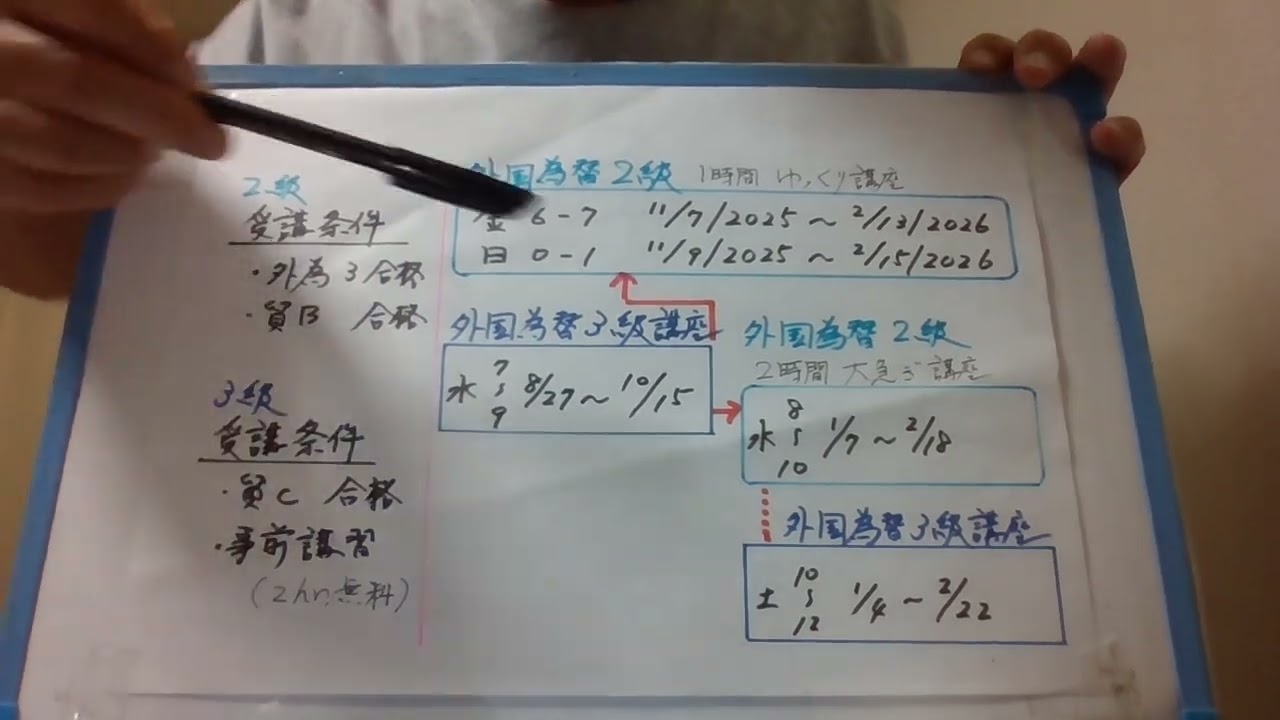 2級
受講条件
・外為3合格
・貿B 合格
3級
受講条件
・貿C 合格
・事前講習
(2hr無料)
外国為替2級 1時間 ゆっくり講座
金 6-7 11/7/2025~2/13/2026
日 0-1 11/9/2025~2/15/2026
外国為替3級講座
水 7~9 8/27~10/15
外国為替2級
2時間 大急ぎ講座
水 8~10 1/7~2/18
外国為替3級講座
土 10~12 1/4~2/22